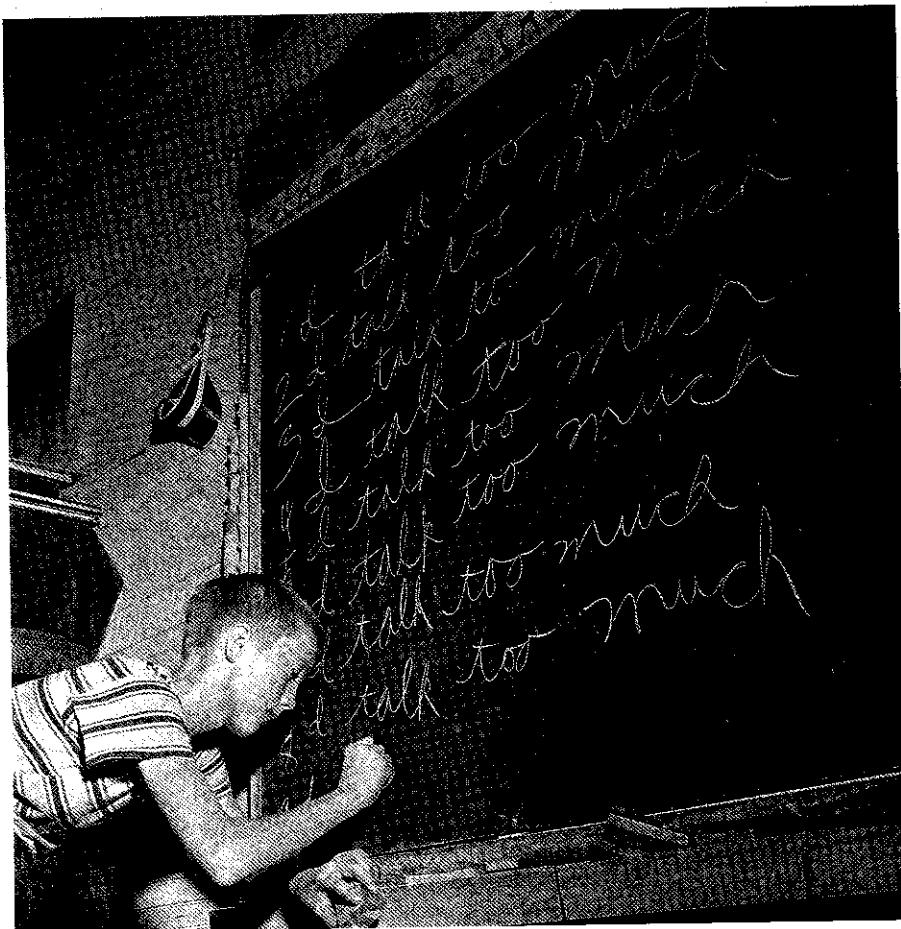 1 I talk too much
2 I talk too much
3 I talk to much
4 I talk too much
I talk too much
I talk too much
I talk too much
I talk too much
I